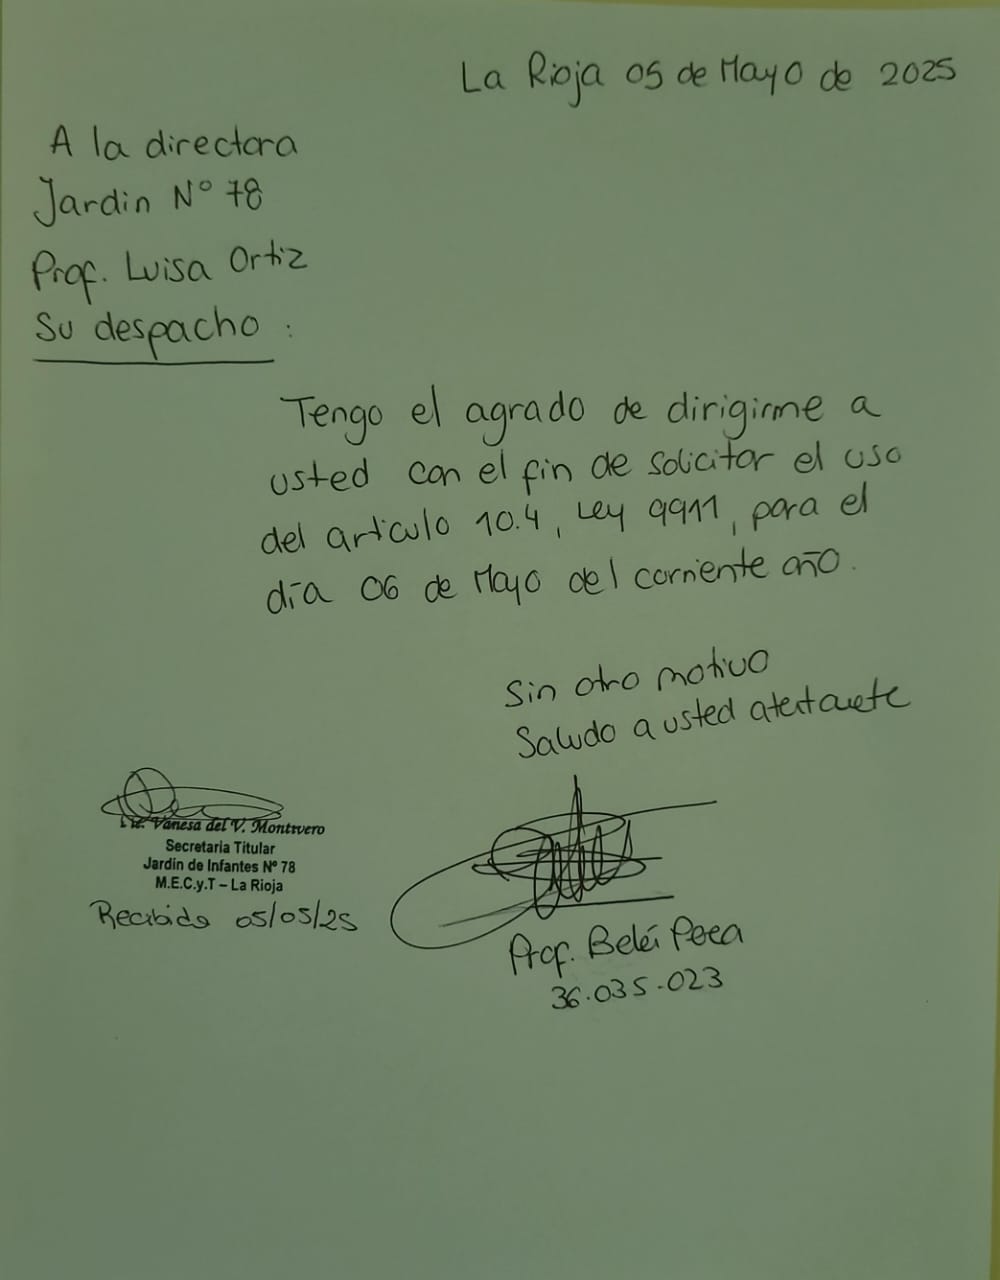 La Rioja 05 de Mayo de 2025
A la directora
Jardin N° 78
Prof. Luisa Ortiz
Su despacho :
Tengo el agrado de dirigirme a
usted con el fin de solicitar el uso
del articulo 10.4, Ley 9911, para el
día 06 de Mayo del corriente año.
Sin otro motivo
Saludo a usted atentamente
Lic. Vanesa del V. Montivero
Secretaria Titular
Jardín de Infantes Nº 78
M.E.C.y.T – La Rioja
Recibido 05/05/25
Prof. Belén
36.035.023